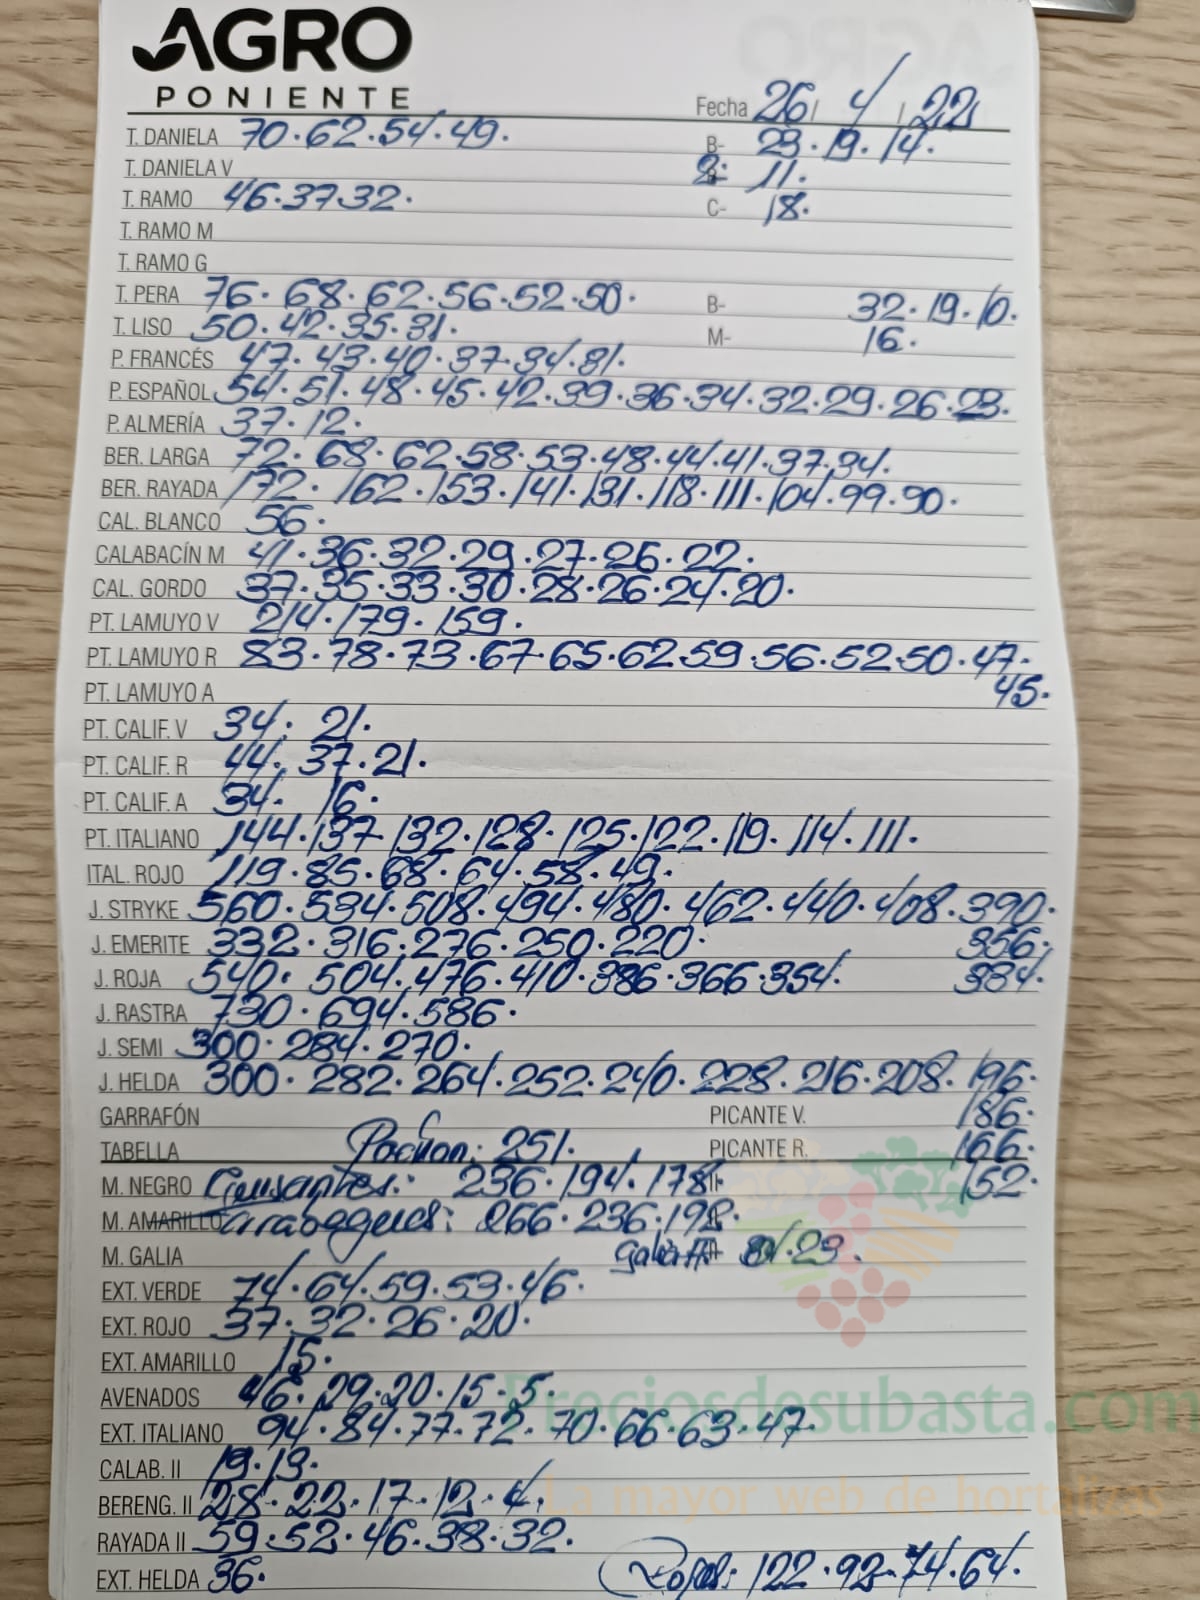 AGRO
PONIENTE
Fecha 26/ 4/ /22
T. DANIELA 70·62·54·49· B- 23·19·14·
T. DANIELA V 2: 11·
T. RAMO 46·37·32· C- 18·
T. RAMO M
T. RAMO G
T. PERA 76·68·62·56·52·50· B- 32·19·10·
T. LISO 50·42·35·31· M- 16·
P. FRANCÉS 47·43·40·37·34·31·
P. ESPAÑOL 54·51·48·45·42·39·36·34·32·29·26·23·
P. ALMERÍA 37·12·
BER. LARGA 72·68·62·58·53·48·44·41·37·34·
BER. RAYADA 172·162·153·141·131·118·111·104·99·90·
CAL. BLANCO 56·
CALABACÍN M 41·36·32·29·27·26·22·
CAL. GORDO 37·35·33·30·28·26·24·20·
PT. LAMUYO V 214·179·159·
PT. LAMUYO R 83·78·73·67·65·62·59·56·52·50·47·
PT. LAMUYO A 45·
PT. CALIF. V 34· 21·
PT. CALIF. R 44·37·21·
PT. CALIF. A 34· 16·
PT. ITALIANO 144·137·132·128·125·122·119·114·111·
ITAL. ROJO 119·85·68·64·58·49·
J. STRYKE 560·534·508·494·480·462·440·408·390·
J. EMERITE 332·316·276·250·220· 356·
J. ROJA 540·504·476·410·386·366·354· 384·
J. RASTRA 730·694·586·
J. SEMI 300·284·270·
J. HELDA 300·282·264·252·240·228·216·208·196·
GARRAFÓN PICANTE V. 186·
TABELLA 251· PICANTE R. 166·
M. NEGRO Guisantes: 236·194·178· 152·
M. AMARILLO 266·236·198·
M. GALIA Galia 31·23·
EXT. VERDE 74·64·59·53·46·
EXT. ROJO 37·32·26·20·
EXT. AMARILLO 15·
AVENADOS 46·29·20·15·5·
Preciosdesubasta.com
EXT. ITALIANO 94·84·77·72·70·66·63·47·
CALAB. II 19·13·
La mayor web de hortalizas
BERENG. II 28·22·17·12·4·
RAYADA II 59·52·46·38·32·
EXT. HELDA 36· Rojas: 122·92·74·64·